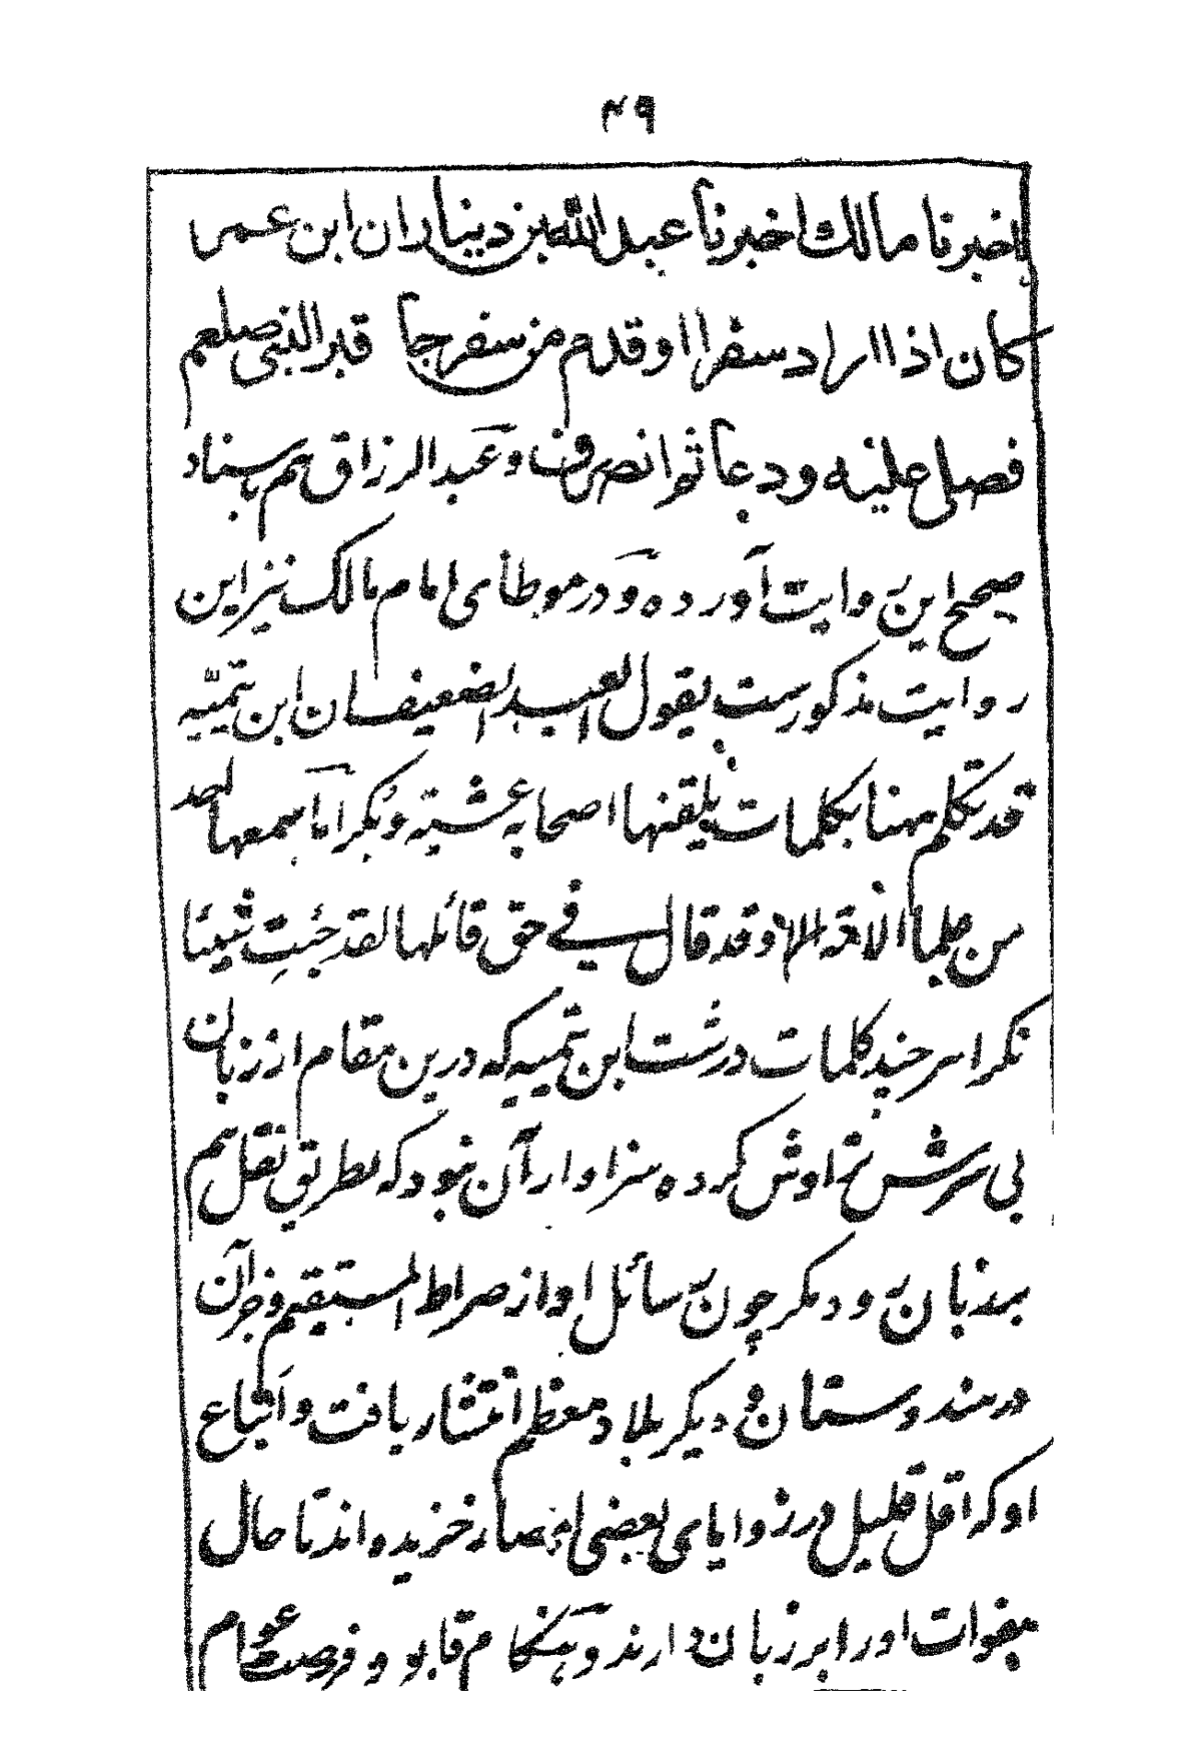 ۴۹
اخبرنا مالك اخبرنا عبد الله بن دينار ان ابن عمر
كان اذا اراد سفرا او قدم من سفر جا قبر النبي صلعم
فصلى عليه ودعا ثم انصرف و عبد الرزاق هم باسناد
صحیح این روایت آورده و در موطأی امام مالک نیز این
روایت مذکورست یقول العبد الضعیف ان ابن تیمیّه
قد تکلم ههنا بکلمات یلقنها اصحابه عشیة و بکرا ما سمعها احد
من علماء الائمة وقد قال فی حق قائلها لقد جئت شیئا
نکرا هر چند کلمات درشت ابن تیمیه که درین مقام از زبان
بی سرش تراوش کرده سزاوار آن نبود که بطریق نقل هم
بر زبان رود مگر چون رسائل او از صراط المستقیم وجز آن
در هندوستان و دیگر بلاد معظم انتشار یافت و اتباع
او که اقل قلیل در زوایای بعضی امصار خزیده اند تا حال
هفوات او را بر زبان دارند و هنگام قابو و فرصت عوام